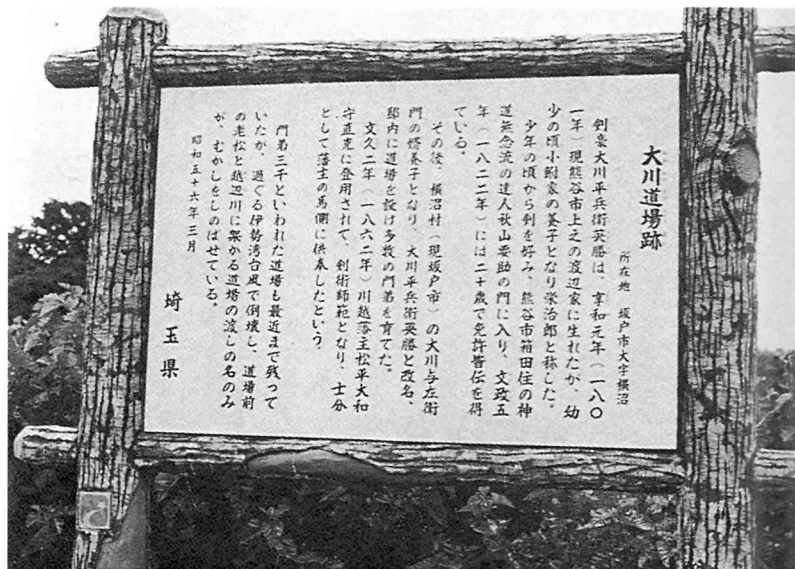 大川道場跡
所在地 坂戸市大字横沼
剣豪大川平兵衛英勝は、享和元年(一八〇
一年)現熊谷市上之の渡辺家に生れたが、幼
少の頃小鮒家の養子となり栄治郎と称した。
少年の頃から剣を好み、熊谷市箱田住の神
道無念流の達人秋山要助の門に入り、文政五
年(一八二二年)には二十歳で免許皆伝を得
ている。
その後、横沼村(現坂戸市)の大川与左衛
門の婿養子となり、大川平兵衛英勝と改名、
邸内に道場を設け多数の門弟を育てた。
文久二年(一八六二年)川越藩主松平大和
守直克に登用されて、剣術師範となり、士分
として藩主の馬側に供奉したという。
門弟三千といわれた道場も最近まで残って
いたが、過ぐる伊勢湾台風で倒壊し、道場前
の老松と越辺川に架かる道場の渡しの名のみ
が、むかしをしのばせている。
昭和五十六年三月
埼玉県